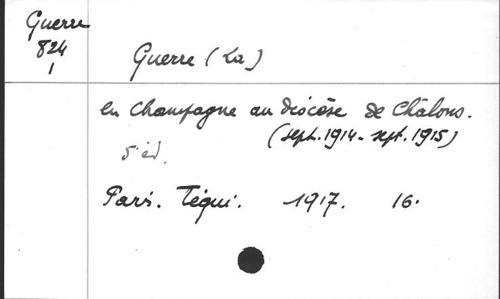 Guerre
824
1
Guerre (La)
en Champagne au diocèse de Châlons.
(sept. 1914 - sept. 1915)
5e éd.
Paris. Téqui. 1917. 16.